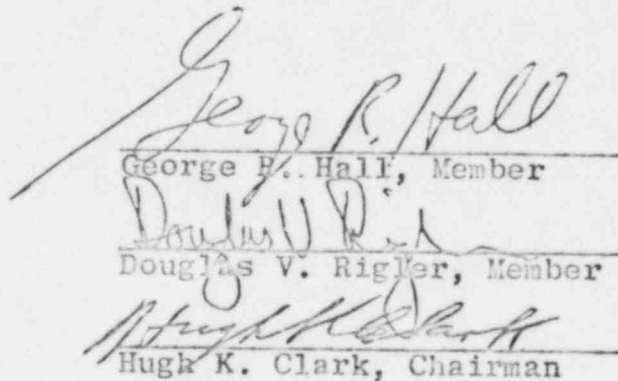 George R. Hall
George R. Hall, Member
Douglas V. Rigler
Douglas V. Rigler, Member
Hugh K. Clark
Hugk K. Clark, Chairman